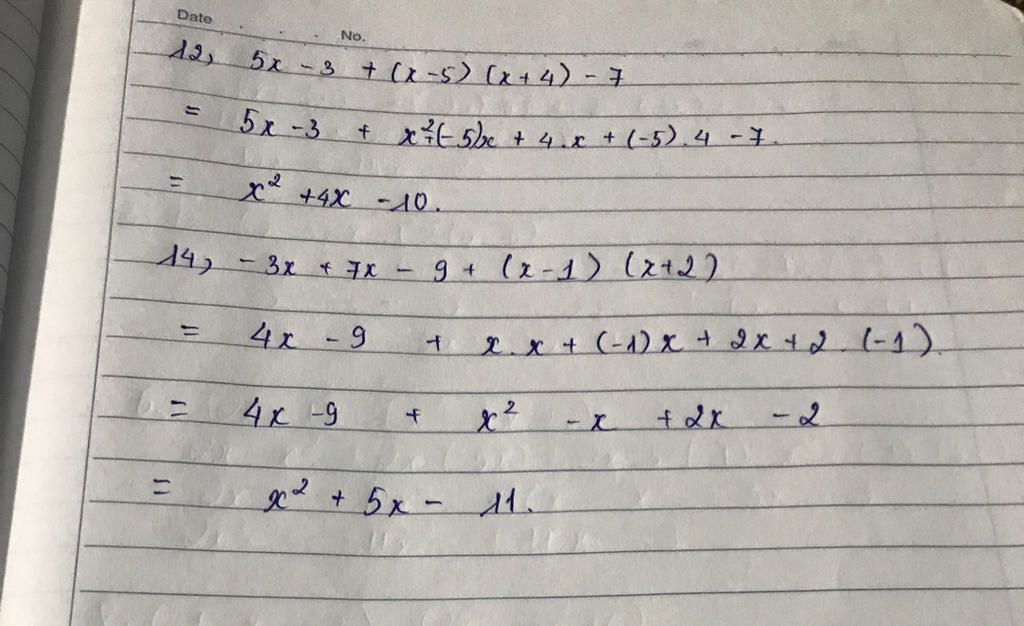 Date
No.
12, 5x - 3 + (x-5) (x+4) - 7
= 5x - 3 + x²+(-5)x + 4.x + (-5).4 - 7.
= x² + 4x - 10.
14, - 3x + 7x - 9 + (x-1) (x+2)
= 4x - 9 + x.x + (-1)x + 2x + 2.(-1).
= 4x - 9 + x² - x + 2x - 2
= x² + 5x - 11.